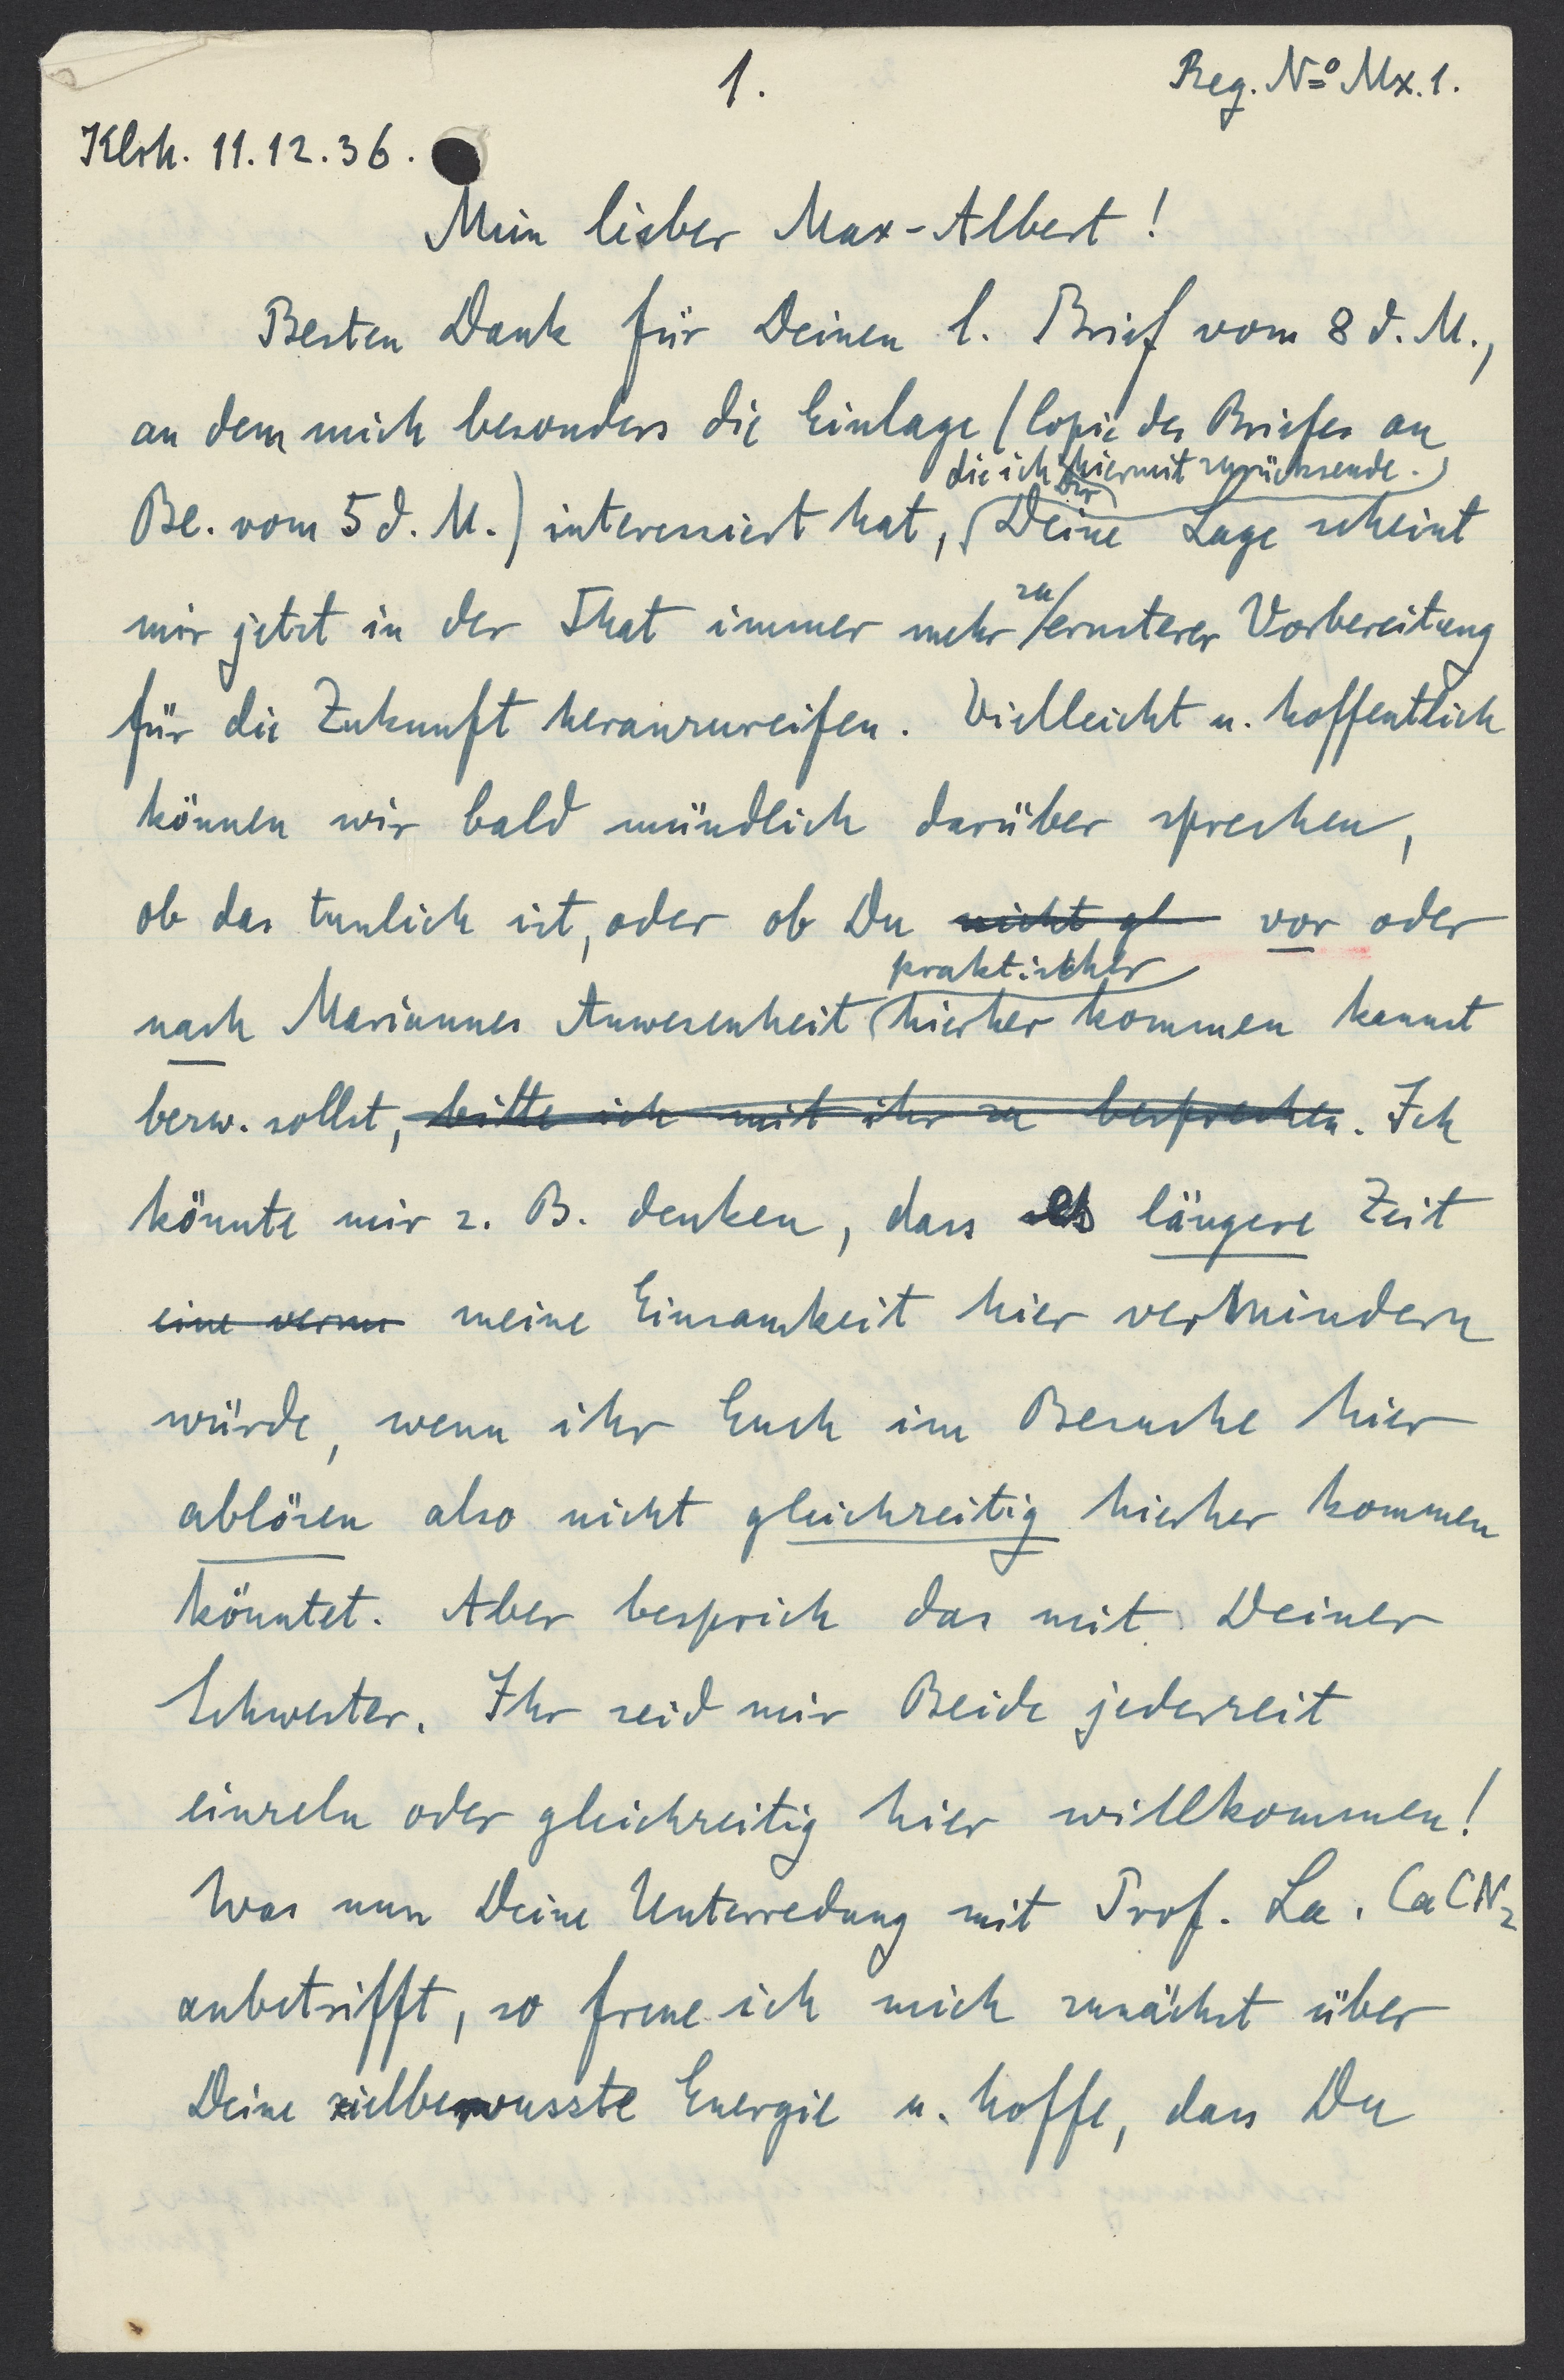 1.
Reg. No Mx. 1.
Klsh. 11.12.36.
Mein lieber Max-Albert!
Besten Dank für Deinen l. Brief vom 8 d. M.,
an dem mich besonders die Einlage (Copie des Briefes an
die ich Dir hiermit zurücksende.
Be. vom 5 d. M.) interessiert hat, Deine Lage scheint
mir jetzt in der That immer mehr zu ernsterer Vorbereitung
für die Zukunft heranzureifen. Vielleicht u. hoffentlich
können wir bald mündlich darüber sprechen,
ob das tunlich ist, oder ob Du nicht gl vor oder
praktischer
nach Mariannes Anwesenheit hierher kommen kannst
bezw. sollst, bitte ich mit ihr zu besprechen. Ich
könnte mir z. B. denken, dass es längere Zeit
eine verm meine Einsamkeit hier vermindern
würde, wenn ihr Euch im Besuche hier
ablösen also nicht gleichzeitig hierher kommen
könntet. Aber besprich das mit Deiner
Schwester. Ihr seid mir Beide jederzeit
einzeln oder gleichzeitig hier willkommen!
Was nun Deine Unterredung mit Prof. La. CaCN2
anbetrifft, so freue ich mich zunächst über
Deine zielbewusste Energie u. hoffe, dass Du